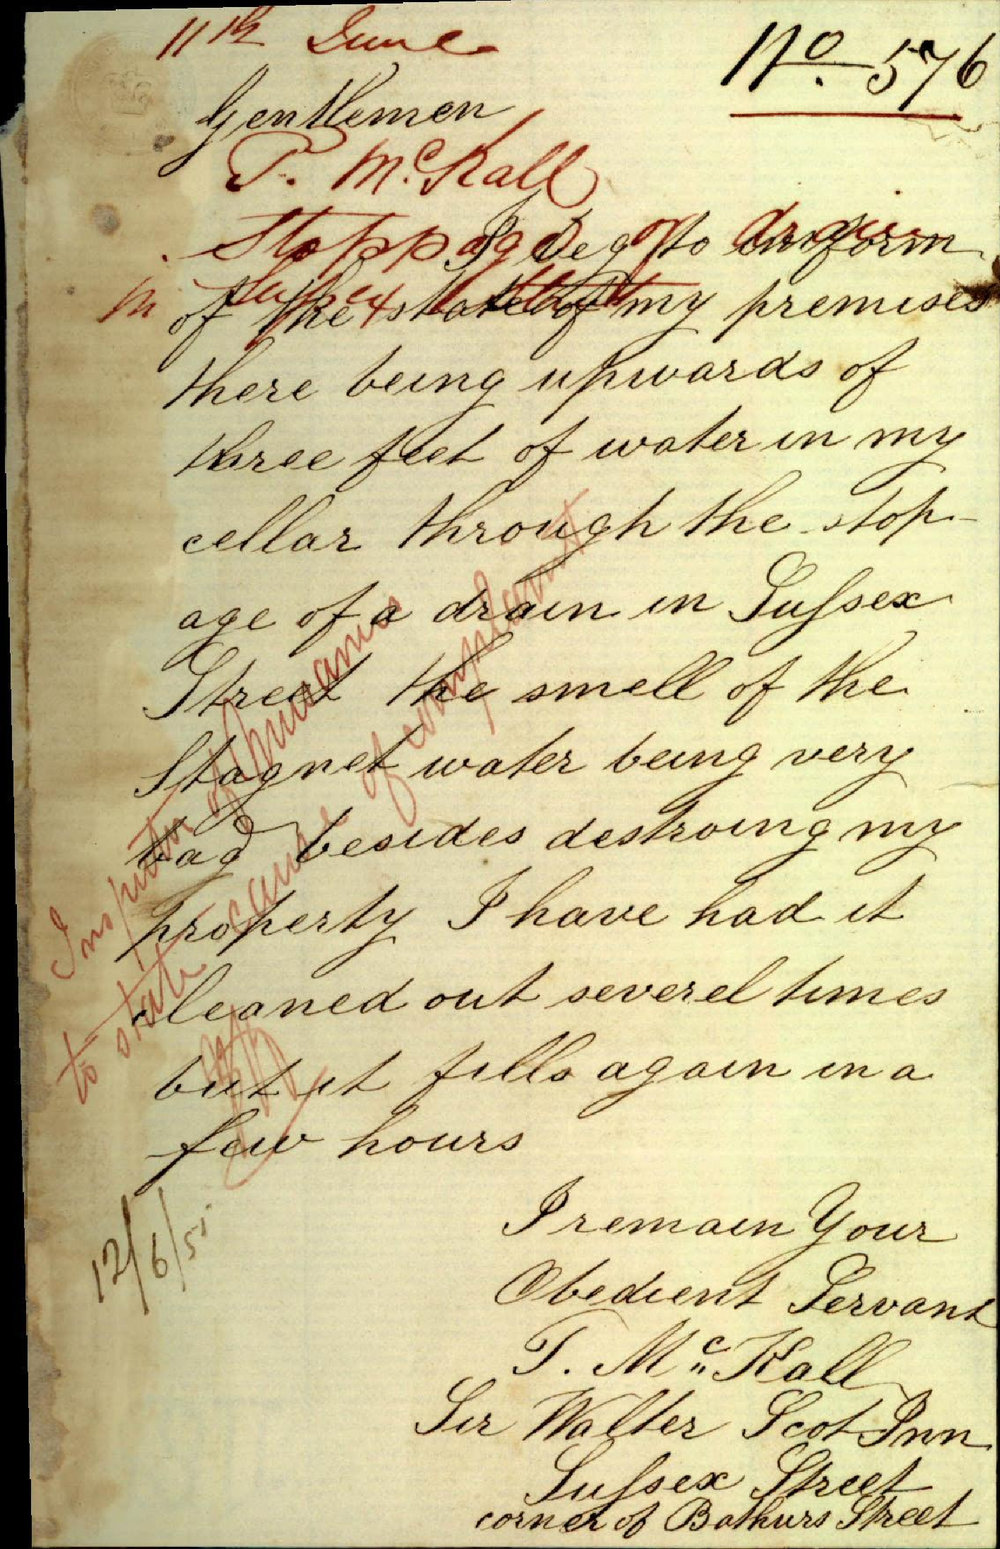 11th June
No. 576
Gentlemen
T. McKall
Stoppage of drain
in Sussex Street
I Beg to inform
of the state of my premises
there being upwards of
three feet of water in my
cellar through the stop-
age of a drain in Sussex
Street the smell of the
Stagnet water being very
bad besides destroing my
property I have had it
cleaned out severel times
but it fills again in a
few hours
Inspector of Nuisances
to state cause of complaint
12/6/55
I remain Your
Obedient Servant
T. Mc Kall
Sir Walter Scot Inn
Sussex Street
corner of Bathurs Street